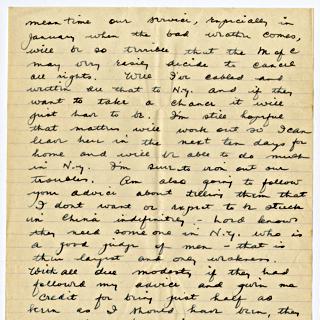 mean time our service, especially in
January when the bad weather comes,
will be so terrible that the M of C
may very easily decide to cancel
all rights. Well I've cabled and
written all that to N.Y. and if they
want to take a chance it will
just have to be. I'm still hopeful
that matters will work out so I can
leave here in the next ten days for
home and will be able to do much
in N.Y. I'm sure to iron out our
troubles. Am also going to follow
your advice about telling them that
I dont want or expect to be stuck
in China indefinitely - Lord knows
they need someone in N.Y. who is
a good judge of men - that is
their largest and only weakness.
With all due modesty if they had
followed my advice and given me
credit for being just half as
as I should have been, they